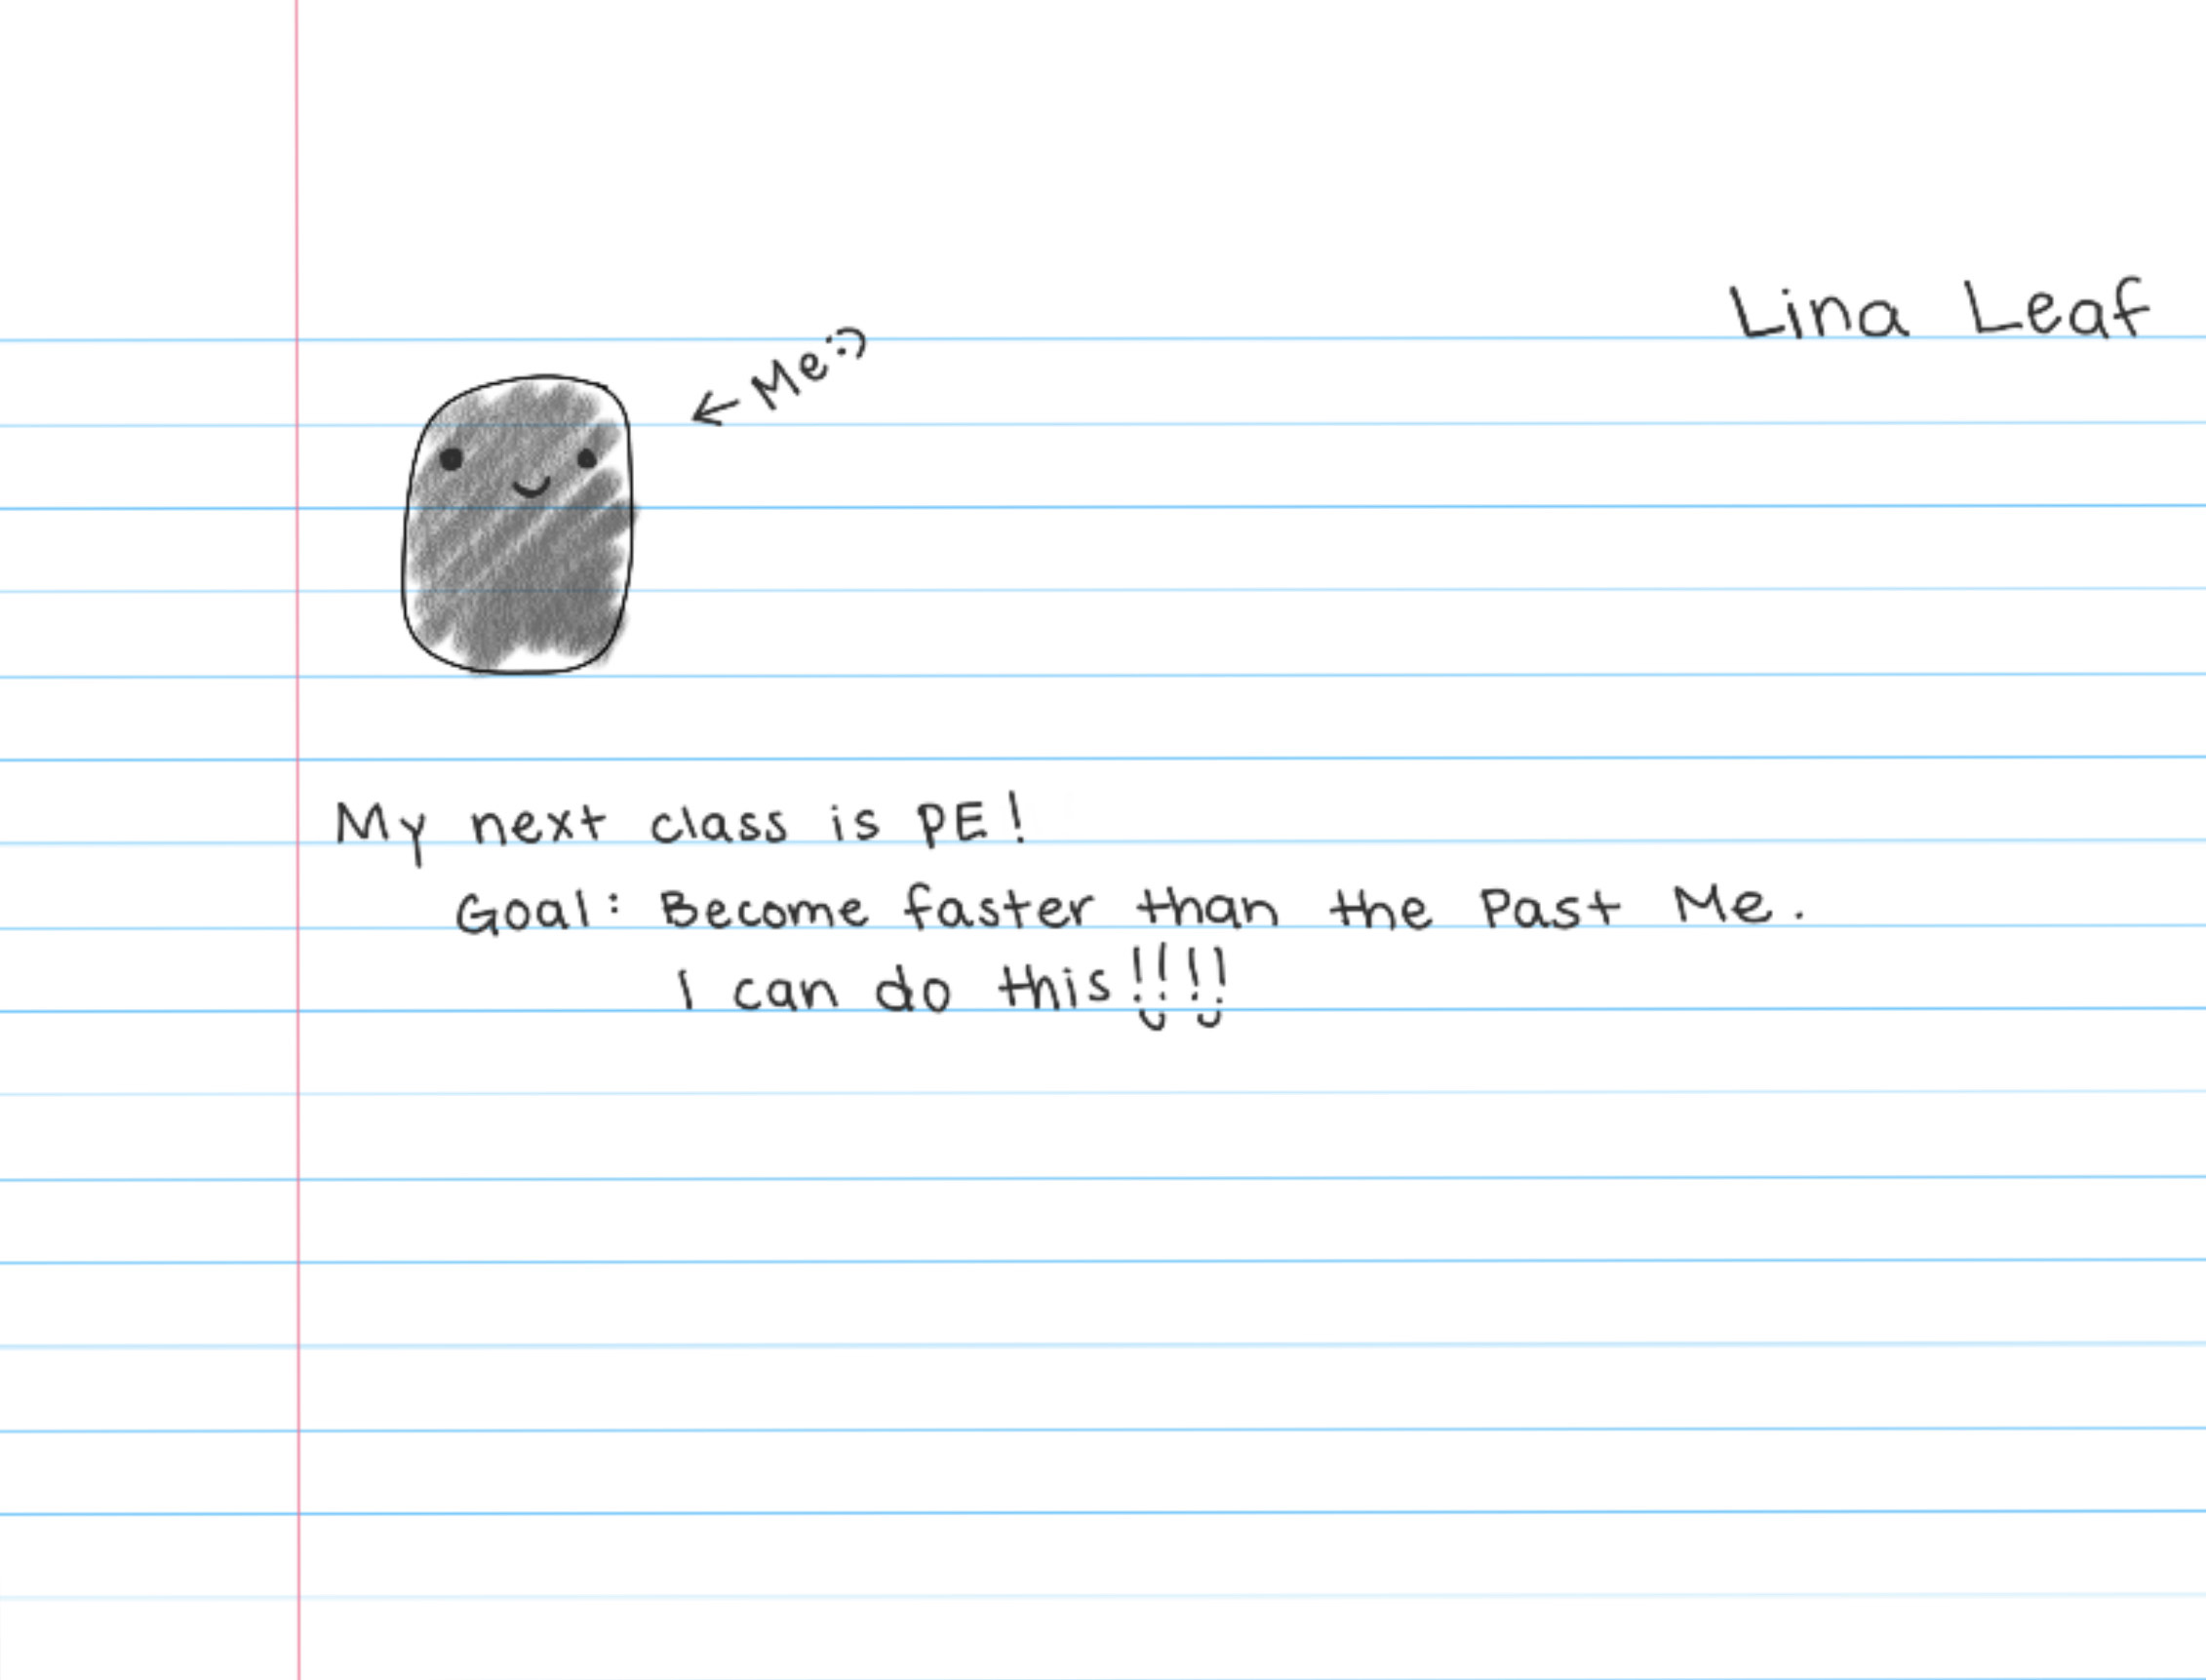 Lina Leaf
← Me :)
My next class is PE!
Goal: Become faster than the Past Me.
I can do this!!!!